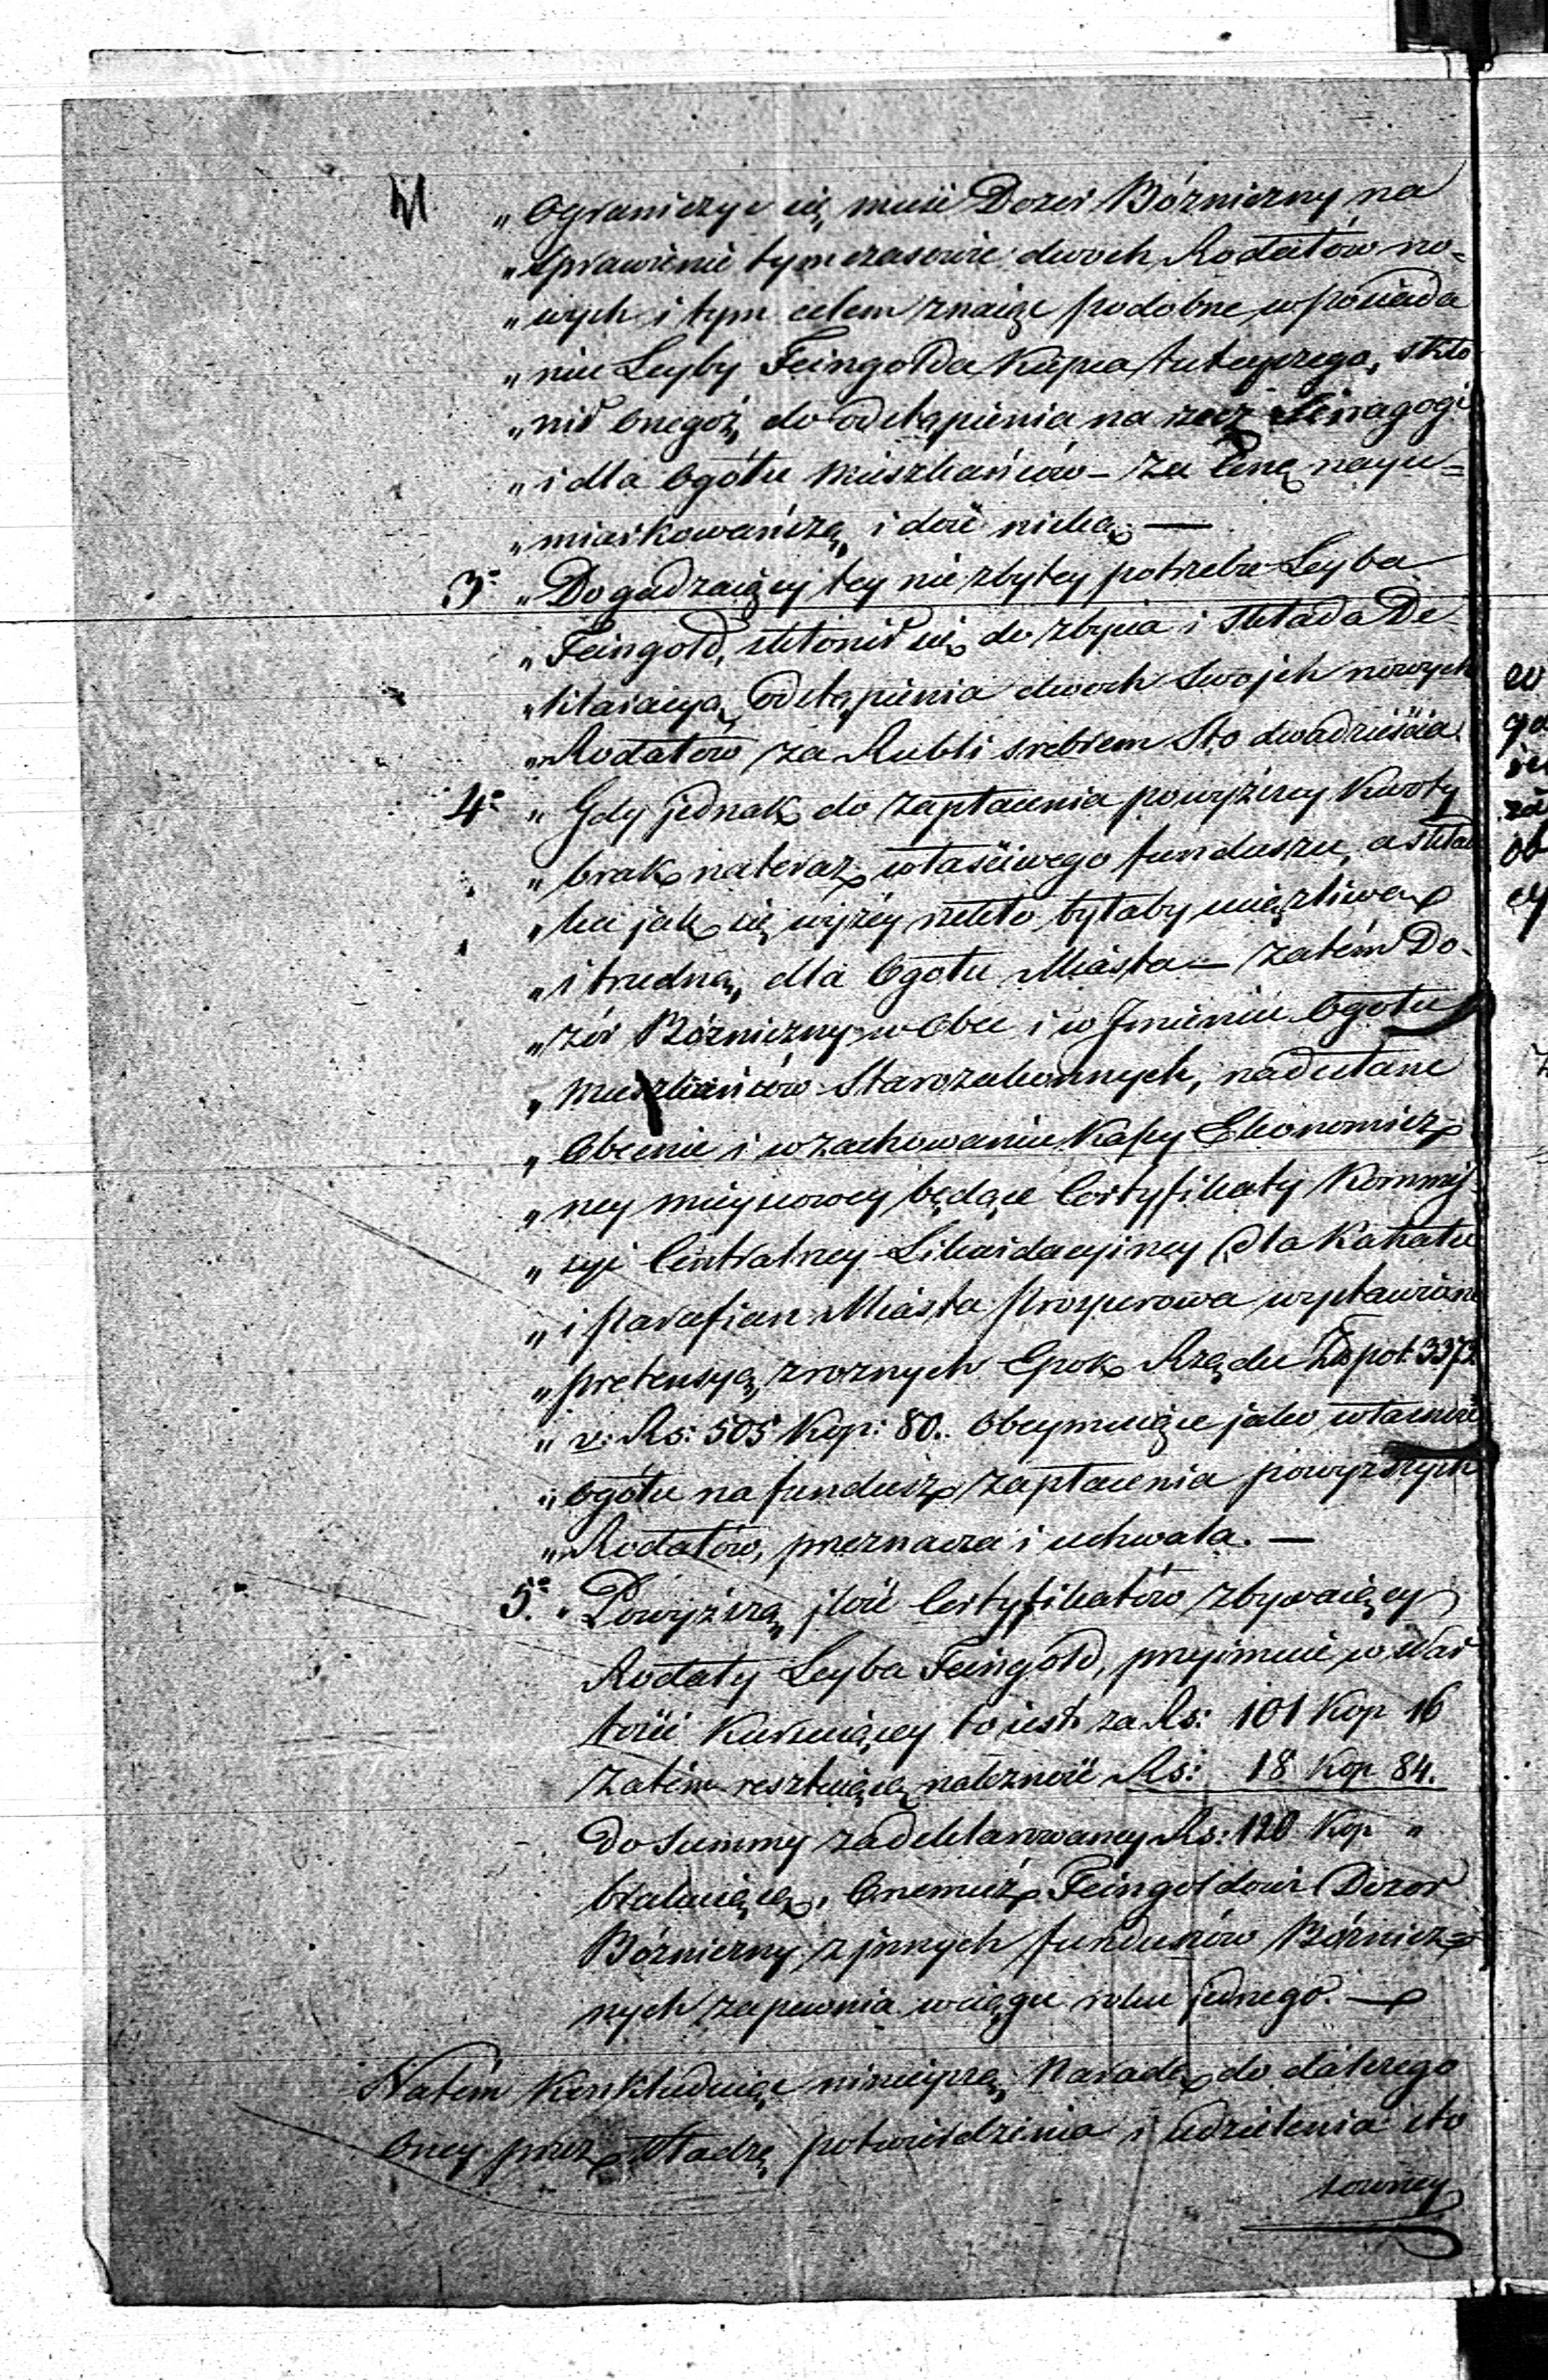 „ Ograniczyć się musi Dozór Bózniczny na
„ sprawienie tymczasowie dwoch Rodałów no=
„ wych i tym celem znaiąc podobne w posiada
„ niu Leyby Feingolda Kupca tuteyszego, skło
„ nił Onegoż do odstąpienia na rzecz Sinagogi
„ i dla Ogółu Mieszkańców – za Cenę nayu=
„ miarkowańszą i dość nizką. —
3° „ Dogadzaiący tey niezbytey potrzebie Leyba
„ Feingold, skłonił się do zbycia i składa De
„ klaracyą odstąpienia dwoch Swojch nowych
„ Rodałów za Rubli srebrem Sto dwadzieścia.
4° „ Gdy jednak do zapłacenia powyższey Kwoty
„ brak nateraz właściwego funduszu, a skład
„ ka jak się wyżey rzekło byłaby uciążliwa
„ i trudną, dla Ogołu Miasta – zatém Do-
„ zór Bózniczny w Obec i w Jmieniu Ogołu
„ Mieszkańców Starozakonnych, nadesłane
„ Obecnie i w zachowaniu Kassy Ekonomicz
„ ney mieyscowey będące Certyfikaty Kommis
„ syi Centralney Likwidacyiney dla Kahału
„ i Parafian Miasta Przyrowa wystawione
„ pretensyą z roznych Epok Rządu Złpol. 3372
„ v: Rs: 505 Kop: 80. Obeymuiące jako własność
„ Ogółu na fundusz zapłacenia powyższych
„ Rodałów, przeznacza i uchwala. —
5° „ Powyższą jlość Certyfikatów zbywaiący
Rodały Leyba Feingold, przyimuie w War
tości Kursuiącey to iest za Rs: 101 Kop 16
Zatém resztuiącą należność Rs: 18 Kop 84.
Do Summy zadeklarowaney Rs: 120 Kop „
brakuiącą, Onemuż Feingoldowi Dozor
Bózniczny z jnnych funduszów Bóznicz=
nych zapewnia w ciągu roku jednego. —
Zatém Konkluduiąc ninieyszą Naradę do dalszego
Oney przez Władzę potwierdzenia i udzielenia sto
sowney